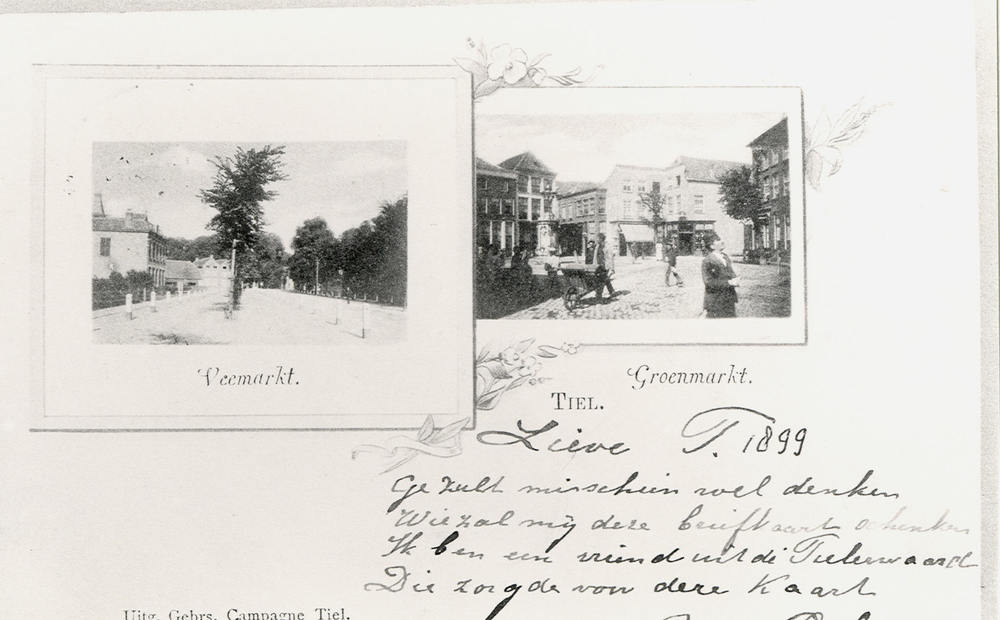 Veemarkt.
Groenmarkt.
TIEL.
Lieve T. 1899
Ge zult misschien wel denken
Wie zal mij deze briefkaart schenken
Ik ben een vriend uit de Tielerwaard
Die zorgde voor deze Kaart
Uitg. Gebrs. Campagne Tiel.